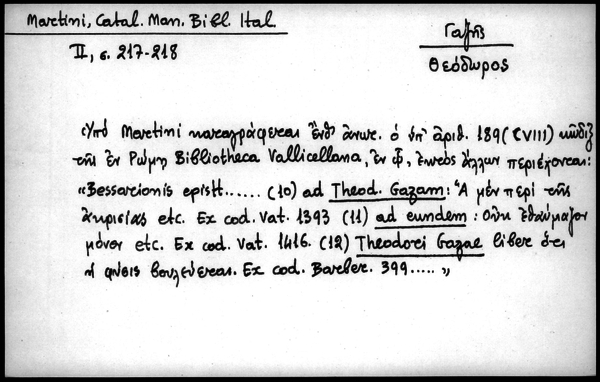 Martini, Catal. Man. Bibl. Ital.
II, σ. 217-218
Γαζῆς
Θεόδωρος
Ὑπὸ Martini καταγράφεται ἔνθ' ἀνωτ. ὁ ὑπ' ἀριθ. 189 (CVIII) κῶδιξ
τῆς ἐν Ρώμῃ Bibliotheca Vallicellana, ἐν ᾧ, ἐκτὸς ἄλλων περιέχονται:
«Bessarionis epistt...... (10) ad Theod. Gazam: Ἃ μὲν περὶ τῆς
ἀκρισίας etc. Ex cod. Vat. 1393 (11) ad eundem: Οὐκ ἐθαύμαζον
μόνον etc. Ex cod. Vat. 1416. (12) Theodorei Gazae liber ὅτι
ἡ φύσις βουλεύεται. Ex cod. Barber. 399..... »